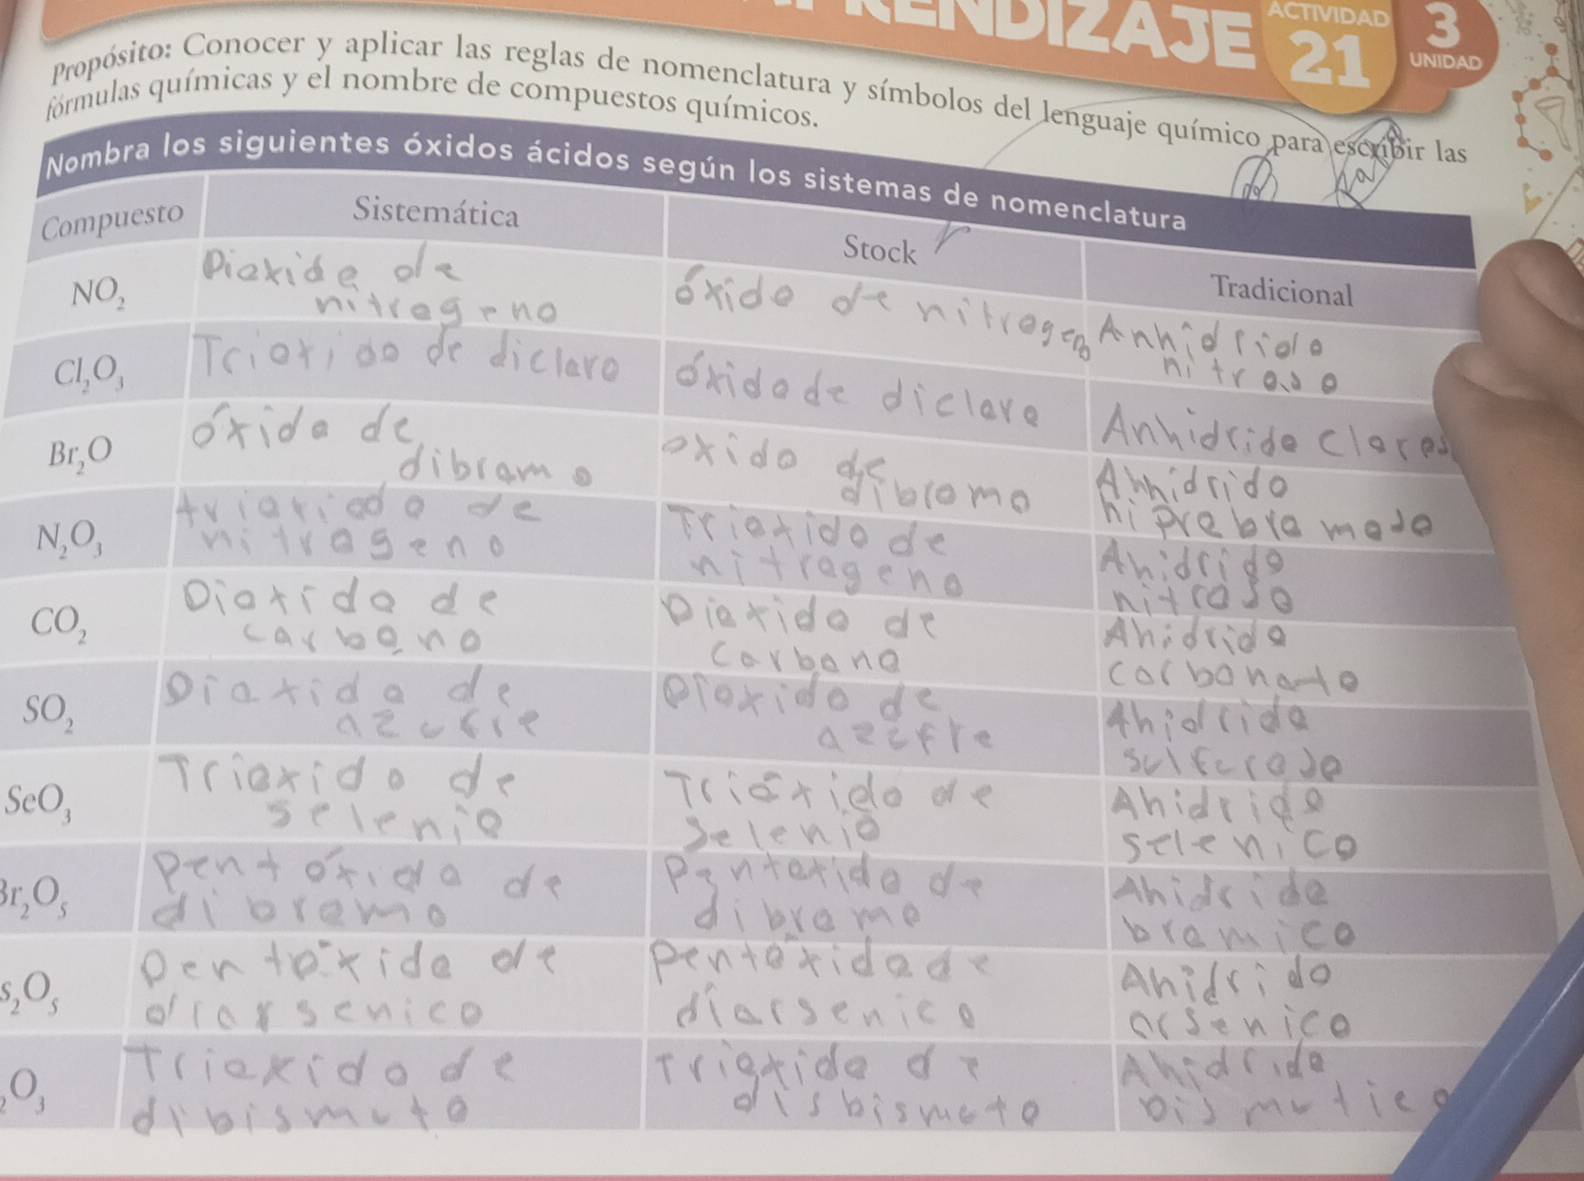 ACTIVIDAD
21
3
UNIDAD
Propósito: Conocer y aplicar las reglas de nomenclatura y símbolos del lenguaje químico para escribir las
fórmulas químicas y el nombre de compuestos químicos.
Nombra los siguientes óxidos ácidos según los sistemas de nomenclatura
Compuesto Sistemática Stock Tradicional
NO₂
Dioxido de
nitrogeno
óxido de nitrogeno
Anhidrido
nitroso
Cl₂O₃
Trioxido de dicloro
óxido de dicloro
Anhidrido
Br₂O
óxido de
dibromo
oxido de
dibromo
Anhidrido
hiprobromoso
N₂O₃
trioxiodo de
nitrogeno
Trioxido de
nitrogeno
Anidrido
nitroso
CO₂
Dioxido de
carbono
Dioxido de
Carbono
Ahidrido
carbonato
SO₂
Dioxido de
azufre
Dioxido de
azufre
Ahidrido
sulfuroso
SeO₃
Trioxido de
selenio
Trióxido de
Selenio
Ahidrido
selenico
r₂O₅
Pentóxido de
dibromo
Pentoxido de
dibromo
Ahidrido
bromico
s₂O₅
Pentóxido de
diarsenico
Pentóxido de
diarsenico
Anidrido
arsenico
₂O₃
Trioxido de
dibismuto
Trioxido de
disbismuto
Ahidrido
bismutico